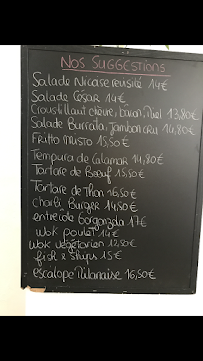 NOS SUGGESTIONS
Salade Nicase revisité 14€
Salade César 14€
Croustillant chèvre, bacon, miel 13,80€
Salade Burrata, Jambon cru 14,80€
Fritto Misto 15,50€
Tempura de Calamar 14,80€
Tartare de Bœuf 15,50€
Tartare de Thon 16,50€
Charli Burger 14,50€
entrecote Gorgonzola 17€
Wok poulet 14€
Wok vegetarien 12,50€
fish & chips 15€
escalope Milanaise 16,50€